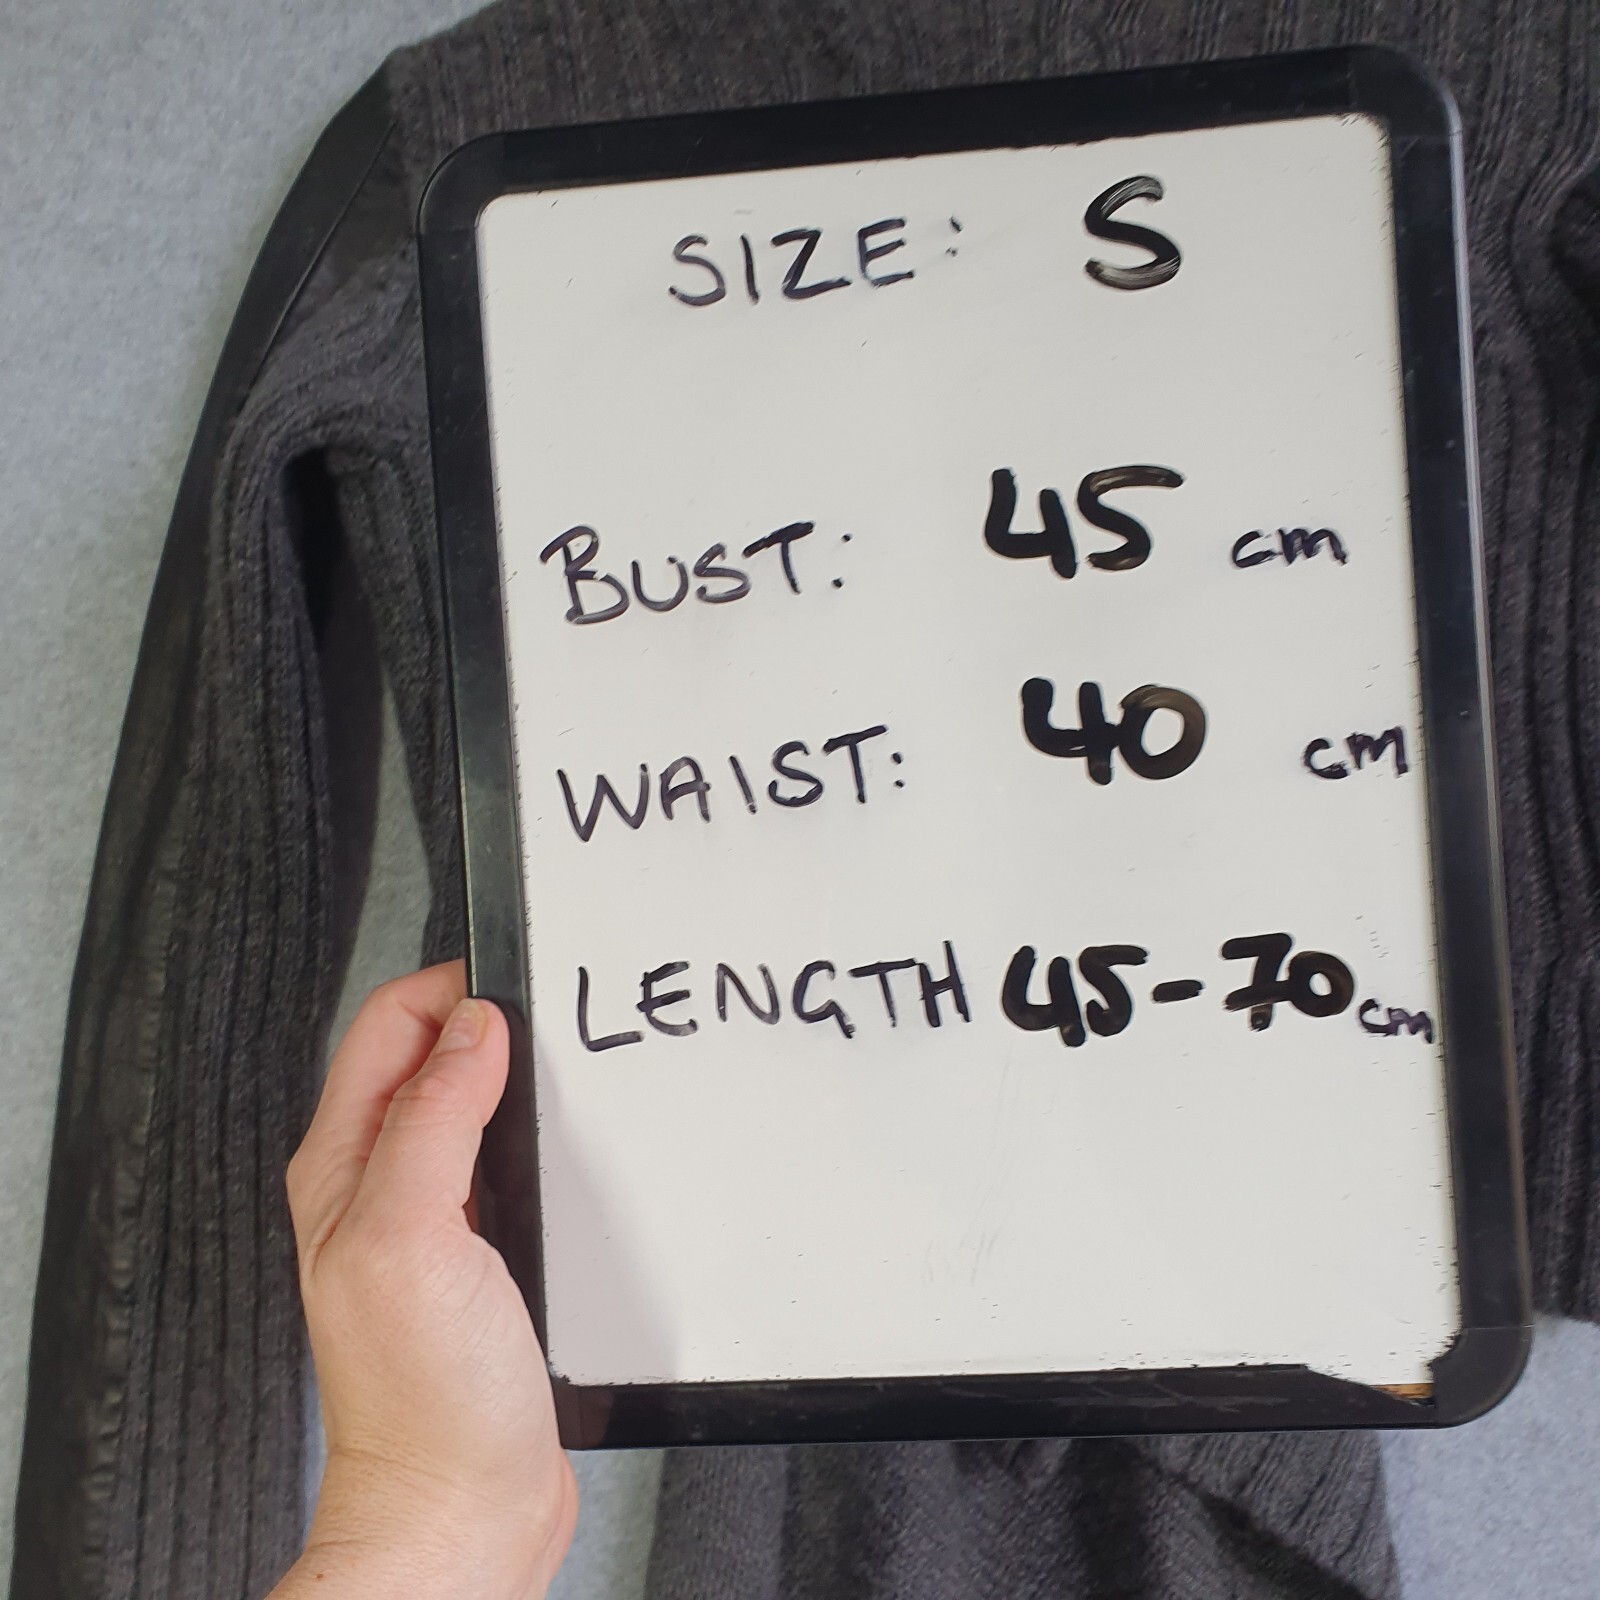 SIZE: S
BUST: 45 cm
WAIST: 40 cm
LENGTH 45-70 cm